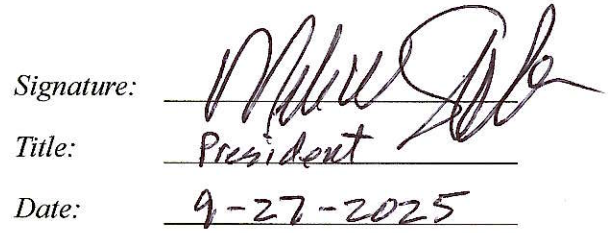 Signature:
Title: President
Date: 9-27-2025